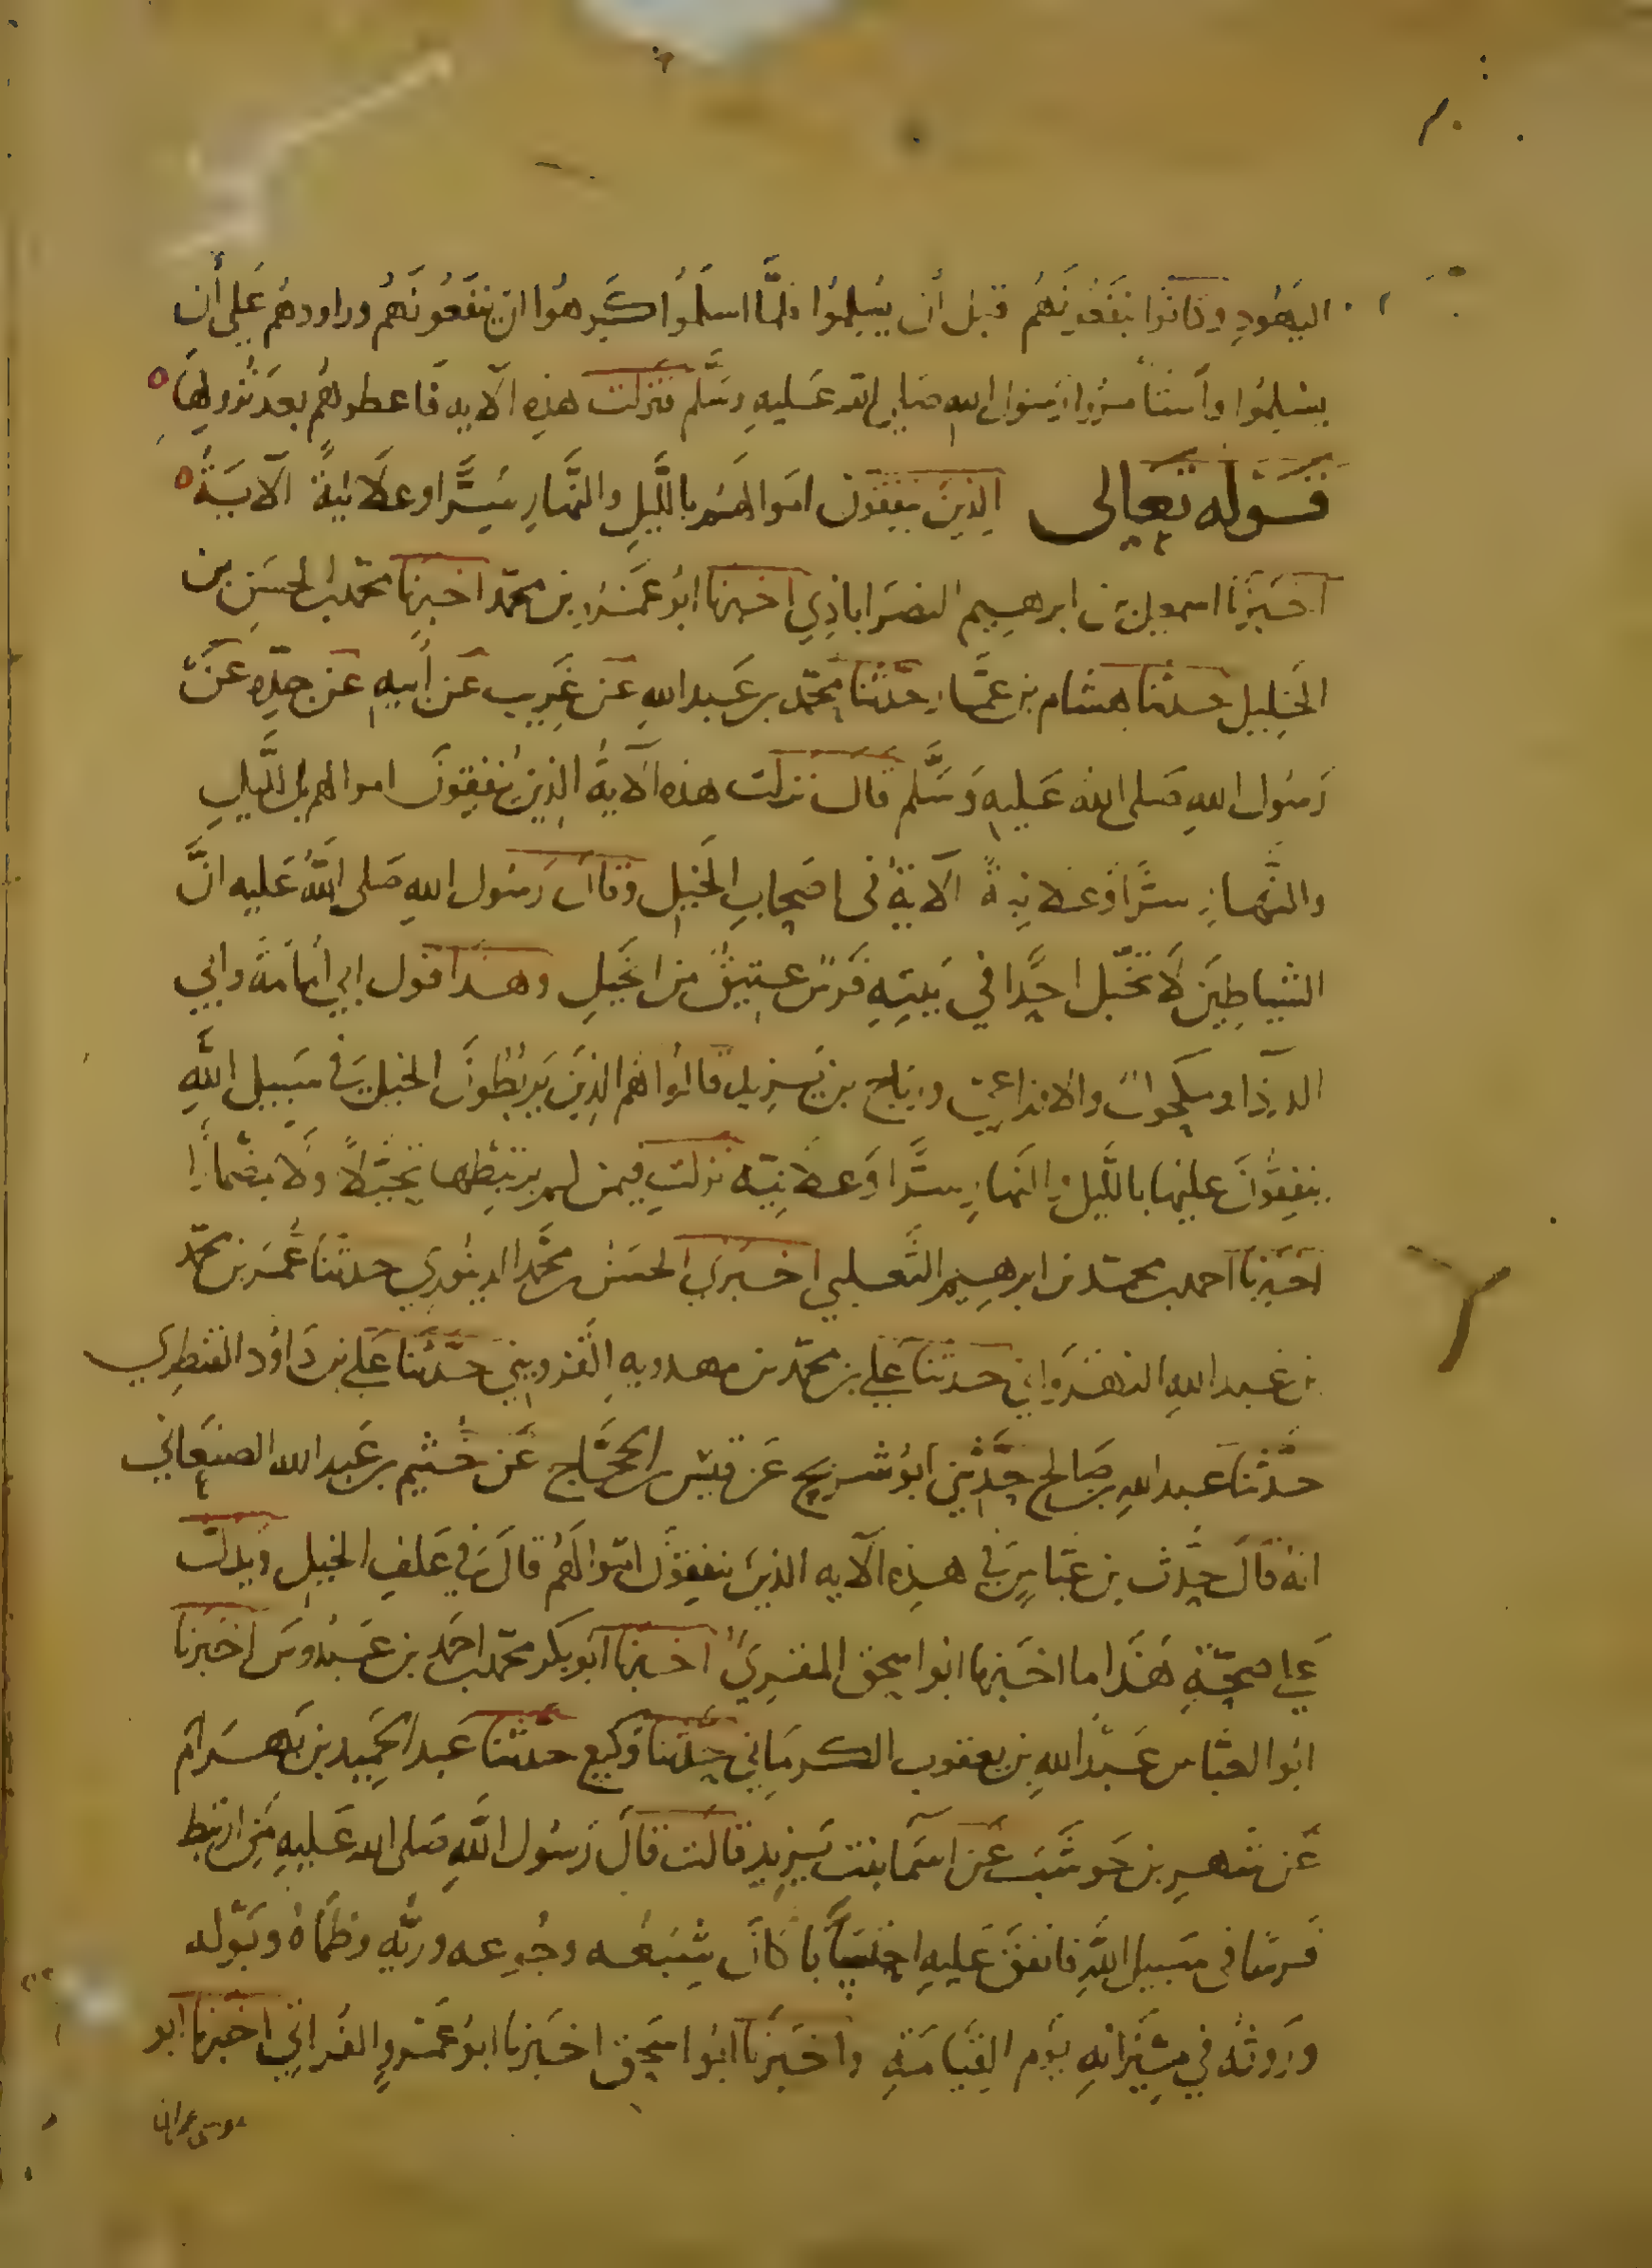 اليَهُودِ وكانُوا ينفَعُونَهُم قبل أن يُسلِمُوا فلمَّا اسلَمُوا كَرِهُوا ان ينفَعُونَهُم وراودهُم عَلى أن
يسْلِمُوا وأستأمرُوا رَسُول اللهِ صَلى الله عَليهِ وسَلَّم فنزلت هذِهِ الآيه فاعطوهُم بعدَ نُزولِهَا
قَوله تعالى الذِينَ ينفقون اموالهُم بالَّليلِ والنَّهارِ سِرًّا وعَلَانِيَةً الآيَةُ
اخبَرنا اسمعيل بن ابرهيم النصرَاباذِي اخبرنا ابُو عَمرو بن محمّد اخبرنا محمّد بن الحسَن بن
الخَلِيل حدثنا هشام بن عمَّار حدَّثنا محمّد بن عَبد اللهِ عَن عَرِيب عَن أبيهِ عَن جدّهِ عَن
رَسُول اللهِ صَلى الله عَليهِ وَسَلَّم قال نزلت هذه الآيةُ الذِينَ يُنفِقونَ اموالهم بالليلِ
والنَّهارِ سرًّا وعَلانيةً الآيةُ في اصحابِ الخَيلِ وقال رَسُول اللهِ صَلى اللهُ عَليه انَّ
الشياطِينَ لَا تخبّل احدًا في بَيتِهِ فَرسٌ عتيقٌ من الخَيلِ وهذا قول ابي أُمَامَةَ وابي
الدرداء ومكحول والاوزاعي ورباح بن يَزيد قالُوا هُم الذِينَ يَربُطونَ الخيلَ في سَبيل اللهِ
ينفِقُونَ عليها بالَّليل والنهارِ سرًّا وَعلانِيَّه نزلت فيمن لم يرتبِطها تخيّلًا ولا مِضْمارًا
اخبَرنا احمد بن محمّد بن ابرهيم الثَّعلبي اخبرني الحسَن بن محَّمد الدينوري حدثنا عُمَر بن محمّد
بن عَبد اللهِ النهرَواني حدثنا عَلي بن محمّد بن مهدويهِ القزويني حدَّثنا عَلي بن دَاوُد القنطِري
حدَّثنا عبد اللهِ بن صَالح حدَّثني ابُو شريح عَن قيس بن الحجَّاج عَن خُثيم بن عَبد الله الصنعَاني
انه قَالَ حدَّث بن عَبّاسٍ في هذِهِ الآيه الذينَ ينفِقُونَ امْوالَهُم قالَ في عَلفِ الخيل ويدلّ
عَلى صحّةِ هَذا ما اخبَرنا ابُو اسحق المقرِيُّ اخبرنا ابو بكر محمّد بن احمَد بن عَبدُوسَ اخبَرنا
ابُو العبّاس عَبْدُ اللهِ بن يعقوب الكرمَاني حدَّثنا وَكيع حدثنا عَبد الحَمِيد بن بَهرَام
عَن شهرِ بن حَوشَب عَن اسمَا بنت يَزِيد قالت قالَ رَسُول اللهِ صَلى الله عَليهِ مَن ارتبَط
فَرسًا في سَبيل اللهِ فانفقَ عَليهِ احتِسَابًا كانَ شِبَعُه وجُوعه وريّه وظمَأهُ وبَوْله
ورَوثُه في مِيزَانِهِ يَوم القِيامَةِ واخبَرنا ابُو اسحق اخبَرنا ابُو عَمرو الفُراتي اخبَرنا ابو
موسى عمران